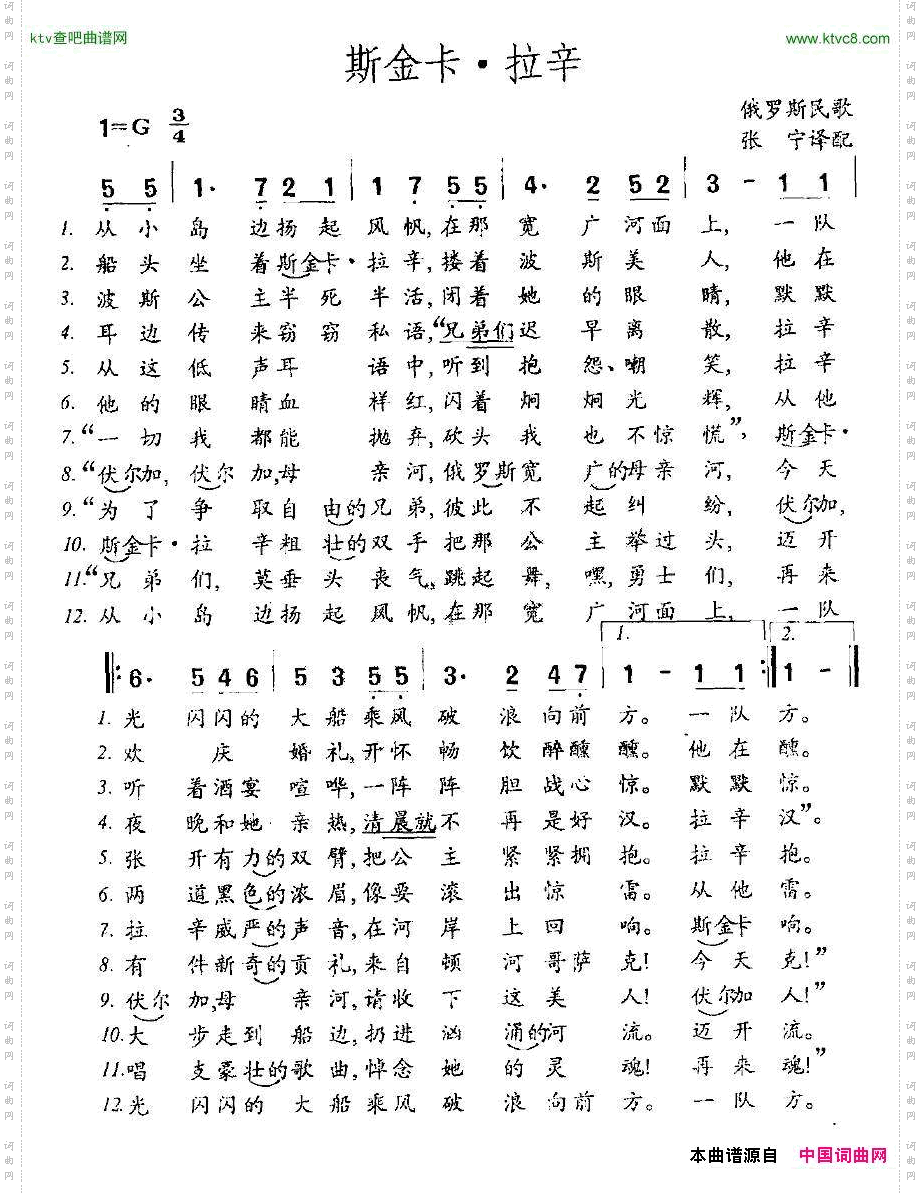 ktv查吧曲谱网
www.ktvc8.com
斯金卡·拉辛
1=G 3/4
俄罗斯民歌
张 宁译配
5 5 | 1· 7 2 1 | 1 7 5 5 | 4· 2 5 2 | 3 - 1 1
1. 从小岛边扬起风帆,在那宽广河面上,一队
2. 船头坐着斯金卡·拉辛,搂着波斯美人,他在
3. 波斯公主半死半活,闭着她的眼睛,默默
4. 耳边传来窃窃私语,“兄弟们迟早离散,拉辛
5. 从这低声耳语中,听到抱怨、嘲笑,拉辛
6. 他的眼睛血样红,闪着炯炯光辉,从他
7. “一切我都能抛弃,砍头我也不惊慌”,斯金卡·
8. “伏尔加,伏尔加,母亲河,俄罗斯宽广的母亲河,今天
9. “为了争取自由的兄弟,彼此不起纠纷,伏尔加,
10. 斯金卡·拉辛粗壮的双手把那公主举过头,迈开
11. “兄弟们,莫垂头丧气,跳起舞,嘿,勇士们,再来
12. 从小岛边扬起风帆,在那宽广河面上,一队
1. 2.
6· 5 4 6 | 5 3 5 5 | 3· 2 4 7 | 1 - 1 1 :| 1 -
1. 光闪闪的大船乘风破浪向前方。一队方。
2. 欢庆婚礼,开怀畅饮醉醺醺。他在醺。
3. 听着酒宴喧哗,一阵阵胆战心惊。默默惊。
4. 夜晚和她亲热,清晨就不再是好汉。拉辛汉”。
5. 张开有力的双臂,把公主紧紧拥抱。拉辛抱。
6. 两道黑色的浓眉,像要滚出惊雷。从他雷。
7. 拉辛威严的声音,在河岸上回响。斯金卡响。
8. 有件新奇的贡礼,来自顿河哥萨克!今天克!”
9. 伏尔加,母亲河,请收下这美人!伏尔加人!”
10. 大步走到船边,扔进汹涌的河流。迈开流。
11. 唱支豪壮的歌曲,悼念她的灵魂!再来魂!”
12. 光闪闪的大船乘风破浪向前方。一队方。
本曲谱源自 中国词曲网